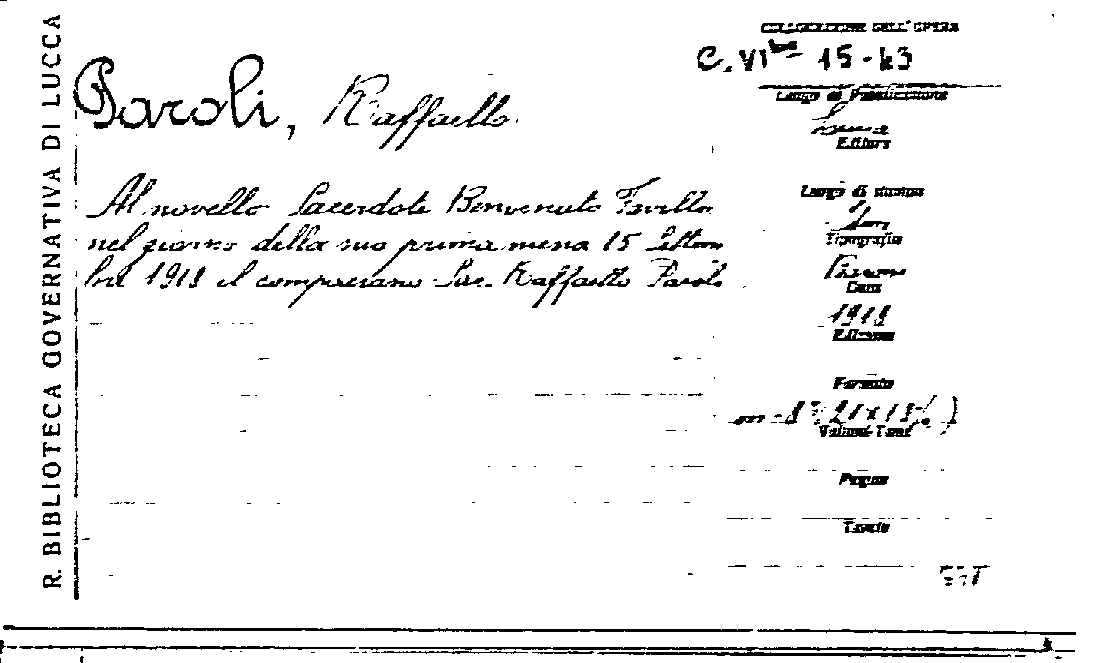 R. BIBLIOTECA GOVERNATIVA DI LUCCA
Paroli, Raffaello.
Al novello Sacerdote Benvenuto Favilla
nel giorno della sua prima messa 15 Settem
bre 1918 il compaesano Sac. Raffaello Paroli
COLLOCAZIONE DELL'OPERA
C. VI bis 15-
Luogo di Pubblicazione
Editore
Luogo di stampa
Tipografia
Data
Edizione
Formato
in-8° (21x15)
Volumi-Tomi
Pagine
Tavole